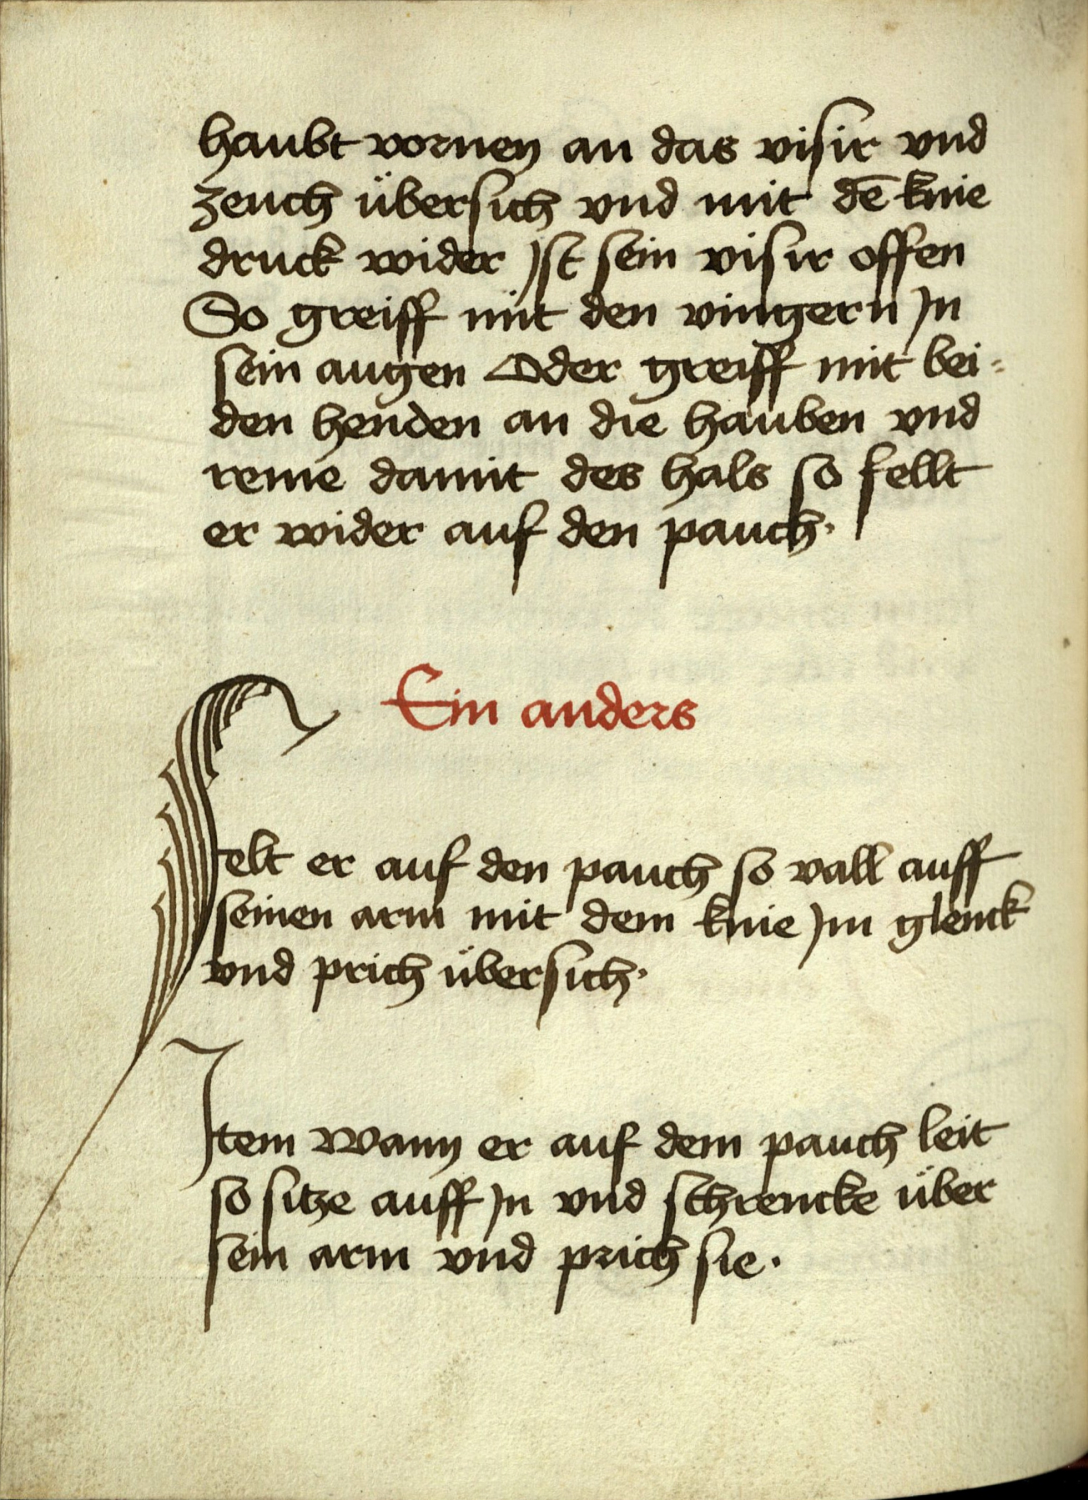 haubt vornen an das visir vnd
zeuch übersich vnd mit dē knie
druck wider Jst sein visir offen
So greiff mit den vingern Jn
sein augen Oder greiff mit bei-
den henden an die hauben vnd
reme damit des hals so fellt
er wider auf den pauch.
Ein anders
Felt er auf den pauch so vall auff
seinen arm mit dem knie Jm glenck
vnd prich übersich.
Jtem wann er auf dem pauch leit
so sitze auff Jn vnd schrencke über
sein arm vnd prich sie.